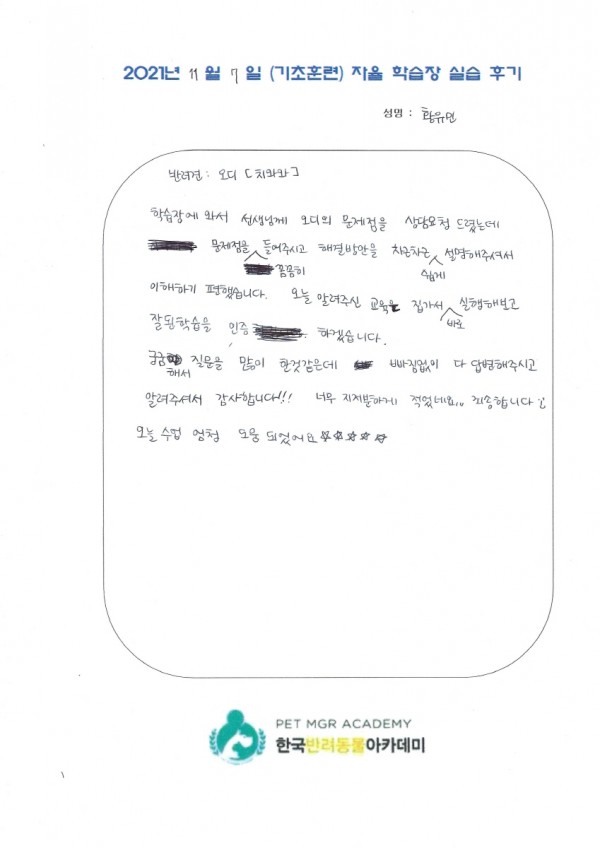 2021년 11월 7일 (기초훈련) 자율 학습장 실습 후기
성명 : 황유민
반려견 : 오디 [치와와]
학습장에 와서 선생님께 오디의 문제점을 상담요청 드렸는데
문제점을 꼼꼼히 들어주시고 해결방안을 차근차근 쉽게 설명해주셔서
이해하기 편했습니다. 오늘 알려주신 교육을 집가서 바로 실행해보고
잘된학습을 인증 하겠습니다.
궁금해서 질문을 많이 한것같은데 빠짐없이 다 답변해주시고
알려주셔서 감사합니다!!! 너무 지저분하게 적었네요,,, 죄송합니다 :(
오늘 수업 엄청 도움 되었어요 ☆☆☆☆☆
PET MGR ACADEMY
한국반려동물아카데미